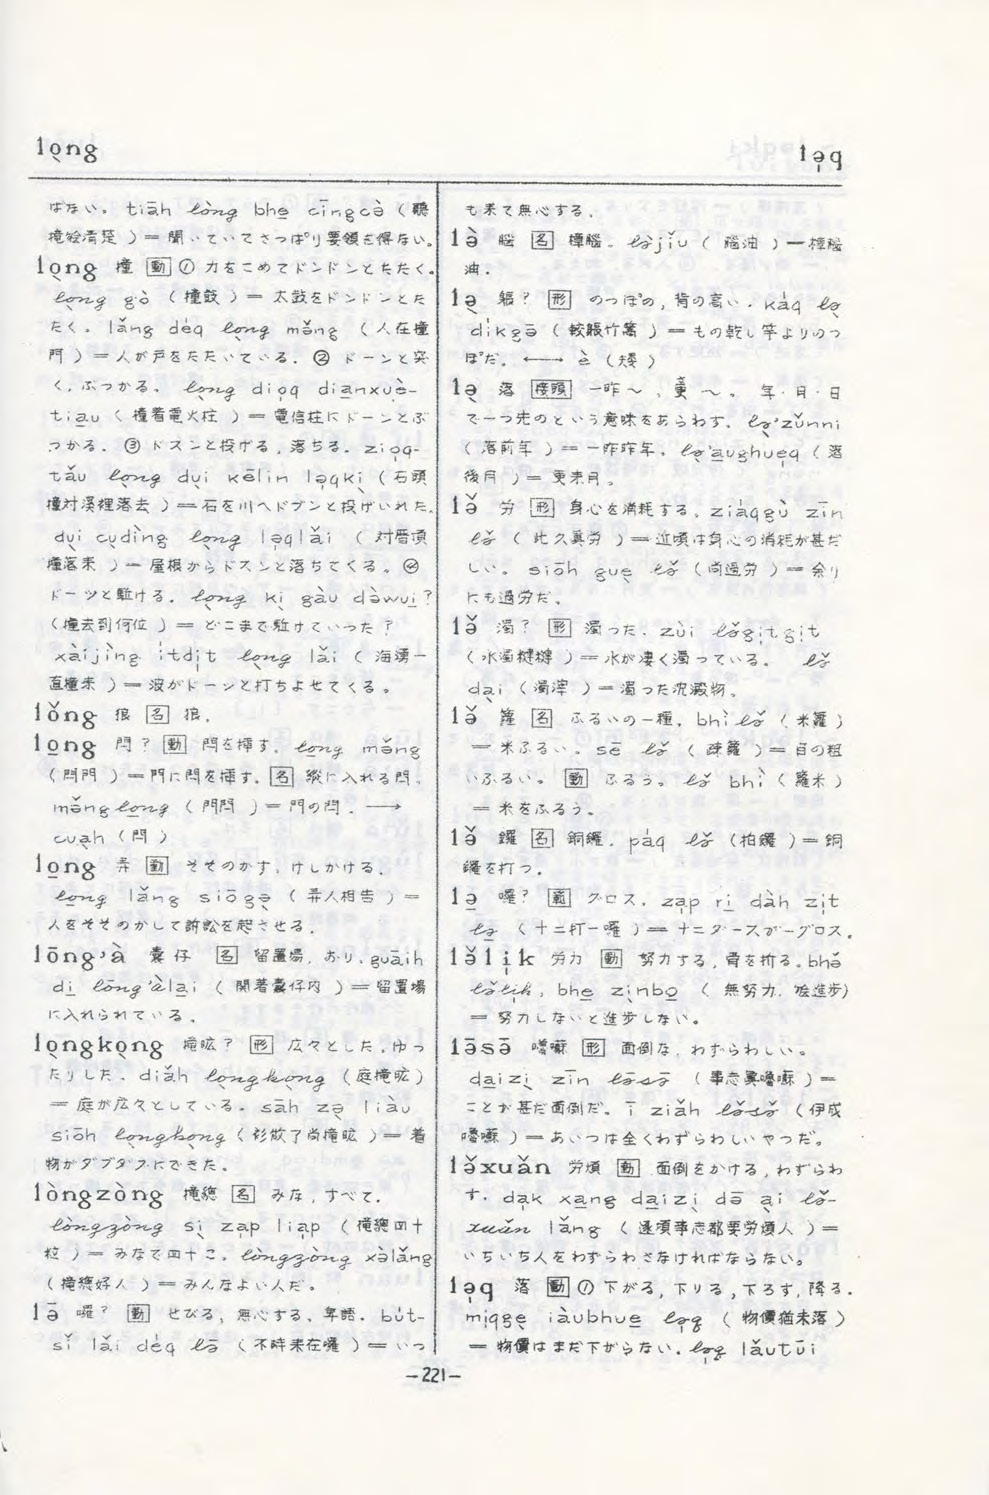 lo̖ng
lə̩q
ばない。tiāh lòng bhe cīngcə̀ (聽
挵繪清楚) = 聞いていてさっぱり要領を得ない。
lo̖ng 撞 [動] ① 力をこめてドンドンとたたく。
lo̖ng gò (撞鼓) = 太鼓をドンドンとた
たく。lǎng déq lo̖ng mə̌ng (人在撞
門) = 人が戸をたたいている。② ドーンと突
く、ぶつかる。lo̖ng dioq dianxuè-
tiau (撞着電火柱) = 電信柱にドーンとぶ
つかる。③ ドスンと投げる、落ちる。zioq-
tǎu lo̖ng du̖i kēlin lə̩qki̖ (石頭
撞対溪裡落去) = 石を川へドブンと投げいれた。
du̖i cu̖dìng lo̖ng lə̩qlǎi (対厝頂
撞落来) = 屋根からドスンと落ちてくる。④
ドーッと駈ける。lo̖ng ki̖ gàu dàwui̱?
(撞去到何位) = どこまで駈けていった?
xàijìng i̍tdi̩t lo̖ng lǎi (海湧一
直撞来) = 波がドーンと打ちよせてくる。
lǒng 狼 [名] 狼。
lo̱ng 閂? [動] 閂を挿す。lo̱ng mə̌ng
(閂門) = 門に閂を挿す。[名] 縦に入れる閂。
mə̌nglo̱ng (門閂) = 門の閂。⟶
cuah (閂)
lo̱ng 弄 [動] そそのかす、けしかける。
lo̱ng lǎng siōgə̖ (弄人相告) =
人をそそのかして訴訟を起させる。
lōng'à 囊仔 [名] 留置場、おり。guāih
di̱ lōng'àlai̱ (関着囊仔内) = 留置場
に入れられている。
lo̖ngko̖ng 挵 ? [形] 広々とした、ゆっ
たりした。diǎh lo̖ngko̖ng (庭挵 )
= 庭が広々としている。sāh zə̖ liàu
siōh lo̖ngko̖ng (衫做了尚挵 ) = 着
物がダブダブにできた。
lòngzòng 挵總 [名] みな、すべて。
lòngzòng si̖ zap liap (挵總四十
粒) = みなで四十こ。lòngzòng xə̀lǎng
(挵總好人) = みんなよい人だ。
lə̄ 囉? [動] せびる、無心する、卑語。bút-
sǐ lǎi déq lə̄ (不時来在囉) = いつ
も来て無心する。
lə̀ 脳 [名] 樟脳。lə̀jǐu (脳油) = 樟脳
油。
lə̖ 躼? [形] のっぽの、背の高い。káq lə̖
díkgə̄ (較躼竹篙) = もの乾し竿よりのっ
ぽだ。⟷ è (矮)
lə̖ 落 [接頭] 一昨~、 ~。年・月・日
で一つ先のという意味をあらわす。lə̖'zǔnni
(落前年) = 一昨昨年。lə̖'aughueq (落
後月) = 更来月。
lə̌ 労 [形] 身心を消耗する。ziáqgù zīn
lə̌ (此久真労) = 近頃は身心の消耗が甚だ
しい。siōh gue̖ lə̌ (尚過労) = 余り
にも過労だ。
lə̌ 濁? [形] 濁った。zùi lə̌gi̩tgi̩t
(水濁 ) = 水が凄く濁っている。lə̌
dai (濁滓) = 濁った沈澱物。
lə̌ 籮 [名] ふるいの一種。bhìlə̌ (米籮)
= 米ふるい。sē lə̌ (疎籮) = 目の粗
いふるい。[動] ふるう。lə̌ bhì (籮米)
= 米をふるう。
lə̌ 鑼 [名] 銅鑼。páq lə̌ (拍鑼) = 銅
鑼を打つ。
lə̱ 囉? [範] グロス。zap ri̱ dàh zi̩t
lə̱ (十二打一囉) = 十二ダースが一グロス。
lə̌li̩k 労力 [動] 努力する、骨を折る。bhə̌
lə̌li̩k, bhe̱ zi̖nbo̱ (無努力,繪進步)
= 努力しないと進歩しない。
lə̄sə̄ 嚕囌 [形] 面倒な、わずらわしい。
daizi̖ zīn lə̄sə̄ (事志真嚕囌) =
ことが甚だ面倒だ。ī ziǎh lə̄sə̄ (伊成
嚕囌) = あいつは全くわずらわしいやつだ。
lə̌xuǎn 労煩 [動] 面倒をかける、わずらわ
す。dak xang daizi̖ də̄ a̖i lə̌-
xuǎn lǎng (逐項事志都要労煩人) =
いちいち人をわずらわさなければならない。
lə̩q 落 [動] ① 下がる、下りる、下ろす、降る。
miqge̖ iàubhue̱ lə̩q (物價猶未落)
= 物價はまだ下がらない。lə̩q lǎutūi
—221—